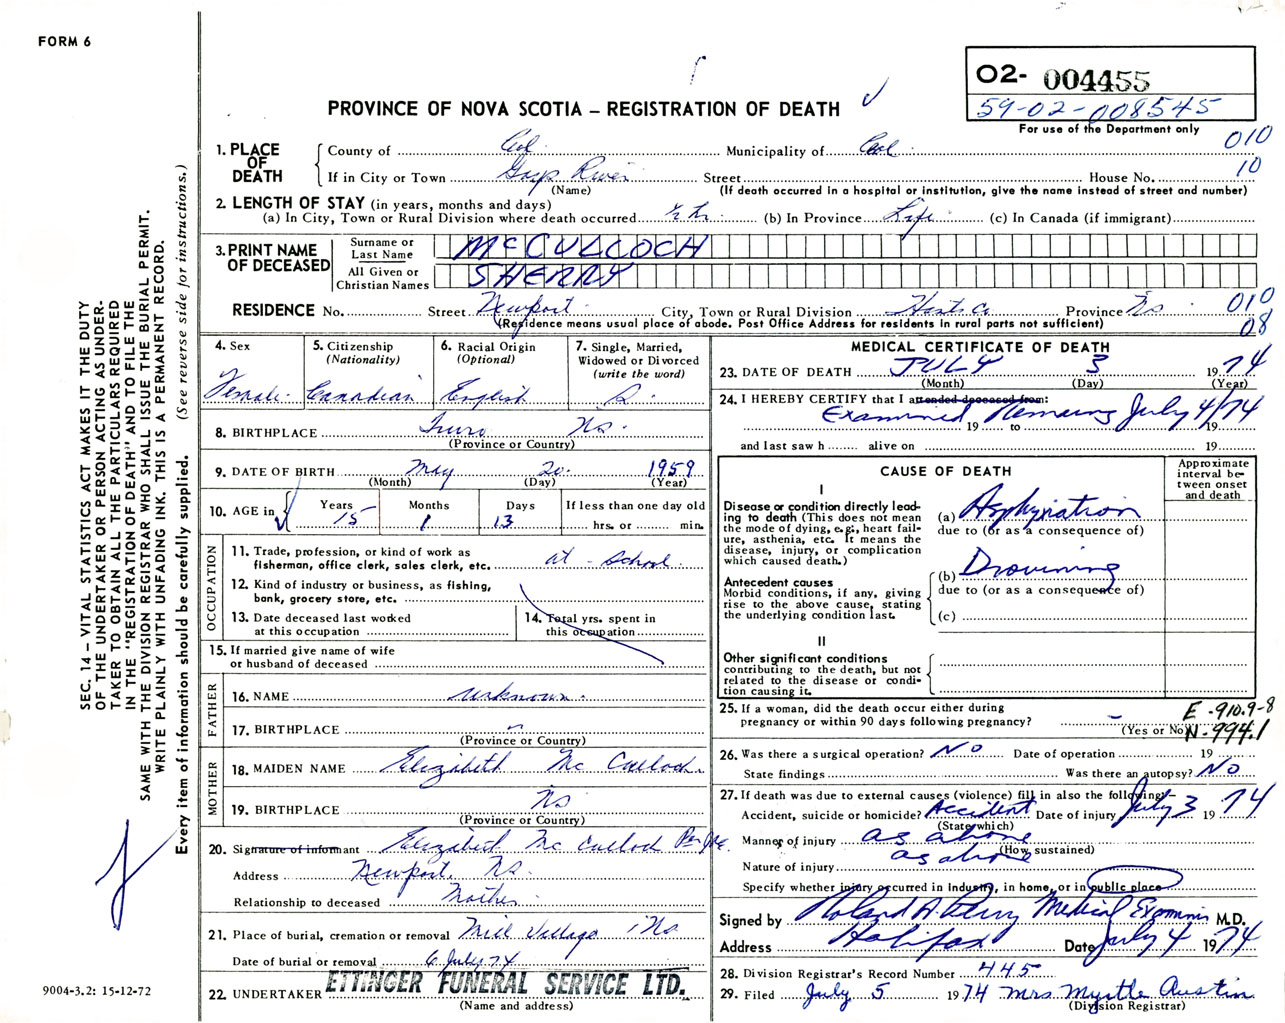 FORM 6
O2- 004455
59-02-008545
For use of the Department only
PROVINCE OF NOVA SCOTIA – REGISTRATION OF DEATH
010
10
1. PLACE OF DEATH
County of Col. Municipality of Col.
If in City or Town Gays River Street House No.
(Name) (If death occurred in a hospital or institution, give the name instead of street and number)
2. LENGTH OF STAY (in years, months and days)
(a) In City, Town or Rural Division where death occurred (b) In Province Life (c) In Canada (if immigrant)
3. PRINT NAME OF DECEASED
Surname or Last Name McCULLOCH
All Given or Christian Names SHERRY
RESIDENCE No. Street Newport City, Town or Rural Division Hants Co Province NS 010
(Residence means usual place of abode. Post Office Address for residents in rural parts not sufficient) 08
4. Sex
Female
5. Citizenship (Nationality)
Canadian
6. Racial Origin (Optional)
English
7. Single, Married, Widowed or Divorced (write the word)
S.
8. BIRTHPLACE Truro NS.
(Province or Country)
9. DATE OF BIRTH May 20. 1959
(Month) (Day) (Year)
10. AGE in Years 15 Months 1 Days 13 If less than one day old
hrs. or min.
OCCUPATION
11. Trade, profession, or kind of work as
fisherman, office clerk, sales clerk, etc. at - School.
12. Kind of industry or business, as fishing,
bank, grocery store, etc.
13. Date deceased last worked
at this occupation
14. Total yrs. spent in
this occupation
15. If married give name of wife
or husband of deceased
FATHER
16. NAME unknown.
17. BIRTHPLACE
(Province or Country)
MOTHER
18. MAIDEN NAME Elizabeth Mc Culloch
19. BIRTHPLACE NS
(Province or Country)
20. Signature of informant Elizabeth Mc Culloch
Address Newport, NS.
Relationship to deceased Mother
21. Place of burial, cremation or removal Mill Village NS
Date of burial or removal 6 July 74
22. UNDERTAKER ETTINGER FUNERAL SERVICE LTD.
(Name and address)
MEDICAL CERTIFICATE OF DEATH
23. DATE OF DEATH JULY 3 1974
(Month) (Day) (Year)
24. I HEREBY CERTIFY that I attended deceased from:
Examined Remains July 4/74
19 to 19
and last saw h alive on 19
CAUSE OF DEATH
Approximate interval between onset and death
I
Disease or condition directly lead-
ing to death (This does not mean
the mode of dying, e.g., heart fail-
ure, asthenia, etc. It means the
disease, injury, or complication
which caused death.)
(a) Asphyxiation
due to (or as a consequence of)
Antecedent causes
Morbid conditions, if any, giving
rise to the above cause, stating
the underlying condition last.
(b) Drowning
due to (or as a consequence of)
(c)
II
Other significant conditions
contributing to the death, but not
related to the disease or condi-
tion causing it.
25. If a woman, did the death occur either during
pregnancy or within 90 days following pregnancy?
(Yes or No)
E-910.9-8
N-994.1
26. Was there a surgical operation? NO Date of operation 19
State findings Was there an autopsy? NO
27. If death was due to external causes (violence) fill in also the following:—
Accident, suicide or homicide? Accident Date of injury July 3 1974
(State which)
Manner of injury as above
(How sustained)
Nature of injury as above
Specify whether injury occurred in Industry, in home, or in public place
Signed by Roland A. Perry Medical Examiner M.D.
Address Halifax Date July 4 1974
28. Division Registrar's Record Number 445
29. Filed July 5 1974 Mrs Myrtle Austin
(Division Registrar)
SEC. 14 – VITAL STATISTICS ACT MAKES IT THE DUTY
OF THE UNDERTAKER OR PERSON ACTING AS UNDER-
TAKER TO OBTAIN ALL THE PARTICULARS REQUIRED
IN THE "REGISTRATION OF DEATH" AND TO FILE THE
SAME WITH THE DIVISION REGISTRAR WHO SHALL ISSUE THE BURIAL PERMIT.
WRITE PLAINLY WITH UNFADING INK. THIS IS A PERMANENT RECORD.
Every item of information should be carefully supplied. (See reverse side for instructions.)
9004-3.2: 15-12-72